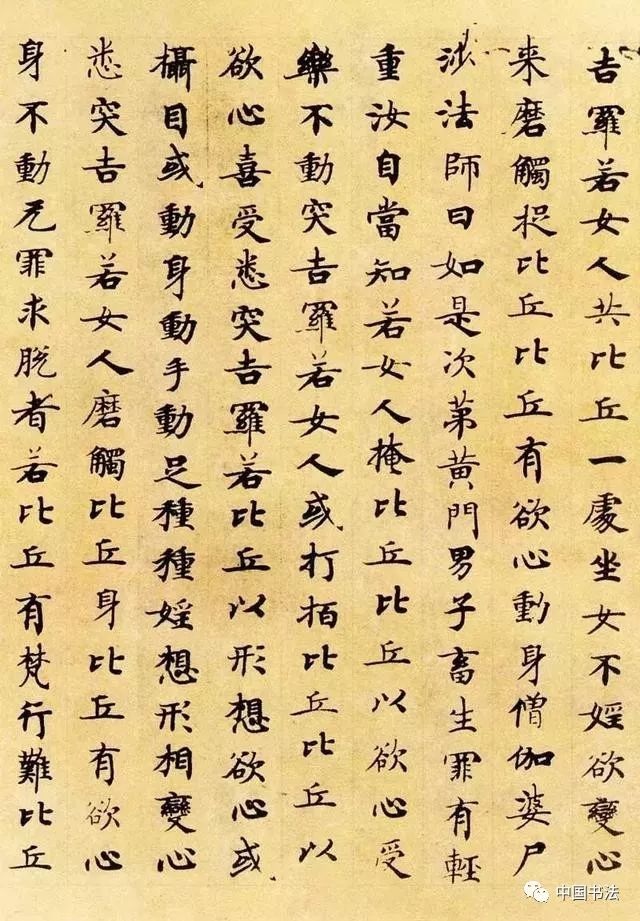 吉羅若女人共比丘一處坐女不婬欲變心
来磨觸捉比丘比丘有欲心動身僧伽婆尸
沙法師曰如是次第黃門男子畜生罪有輕
重汝自當知若女人掩比丘比丘以欲心受
樂不動突吉羅若女人或打拍比丘比丘以
欲心喜受悉突吉羅若比丘以形想欲心或
攝目或動身動手動足種種婬想形相變心
悉突吉羅若女人磨觸比丘身比丘有欲心
身不動无罪求脫者若比丘有梵行難比丘
中国书法